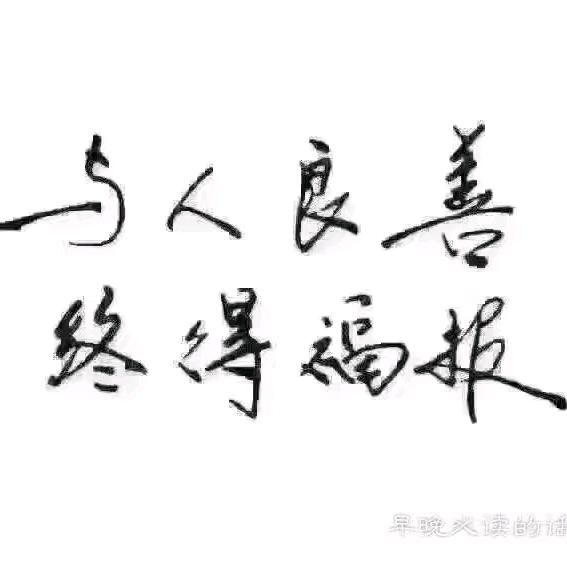 与人良善
终得福报
早晚必读的话